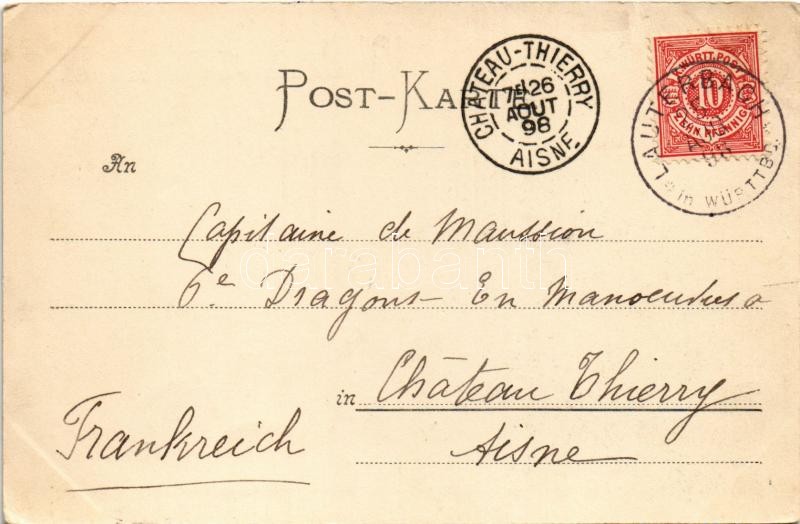 POST-KARTE
CHATEAU-THIERRY
7E 26
AOUT
98
AISNE
K. WÜRTT. POST
10
ZEHN PFENNIG
LAUTERBACH
in WÜRTTBG.
An
Capitaine de Maussion
6e Dragons En Manoeuvres à
in Château Thierry
Frankreich
Aisne
darabanth